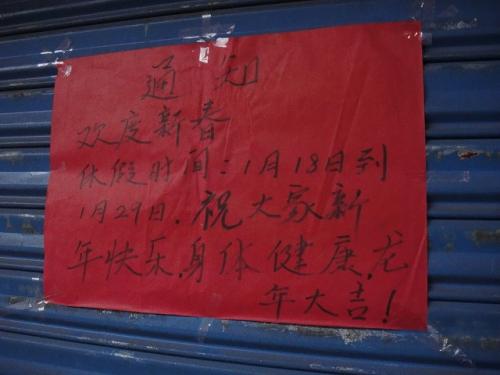 通知
欢度新春
休假时间:1月18日到
1月29日.祝大家新
年快乐.身体健康.龙
年大吉!